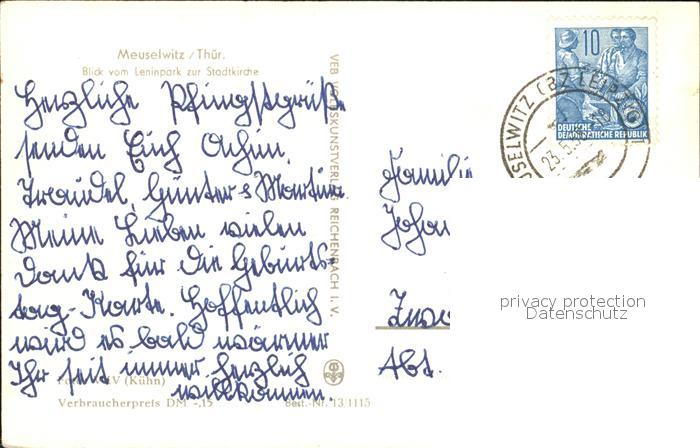 Meuselwitz / Thür.
Blick vom Leninpark zur Stadtkirche
Herzliche Pfingstgrüße
senden Euch Achim,
Traudel, Günter & Martina.
Meine Lieben vielen
Dank für die Geburts-
tag-Karte. Hoffentlich
wird es bald wärmer
Ihr seit immer herzlich
willkommen.
(Kühn)
Verbraucherpreis DM -,15
Best.-Nr. 13/1115
VEB VOLKSKUNSTVERLAG REICHENBACH I. V.
10
DEUTSCHE
DEMOKRATISCHE REPUBLIK
MEUSELWITZ (BZ LEIPZIG)
23.5.
Familie
Joha
Zwi
Abt.
privacy protection
Datenschutz